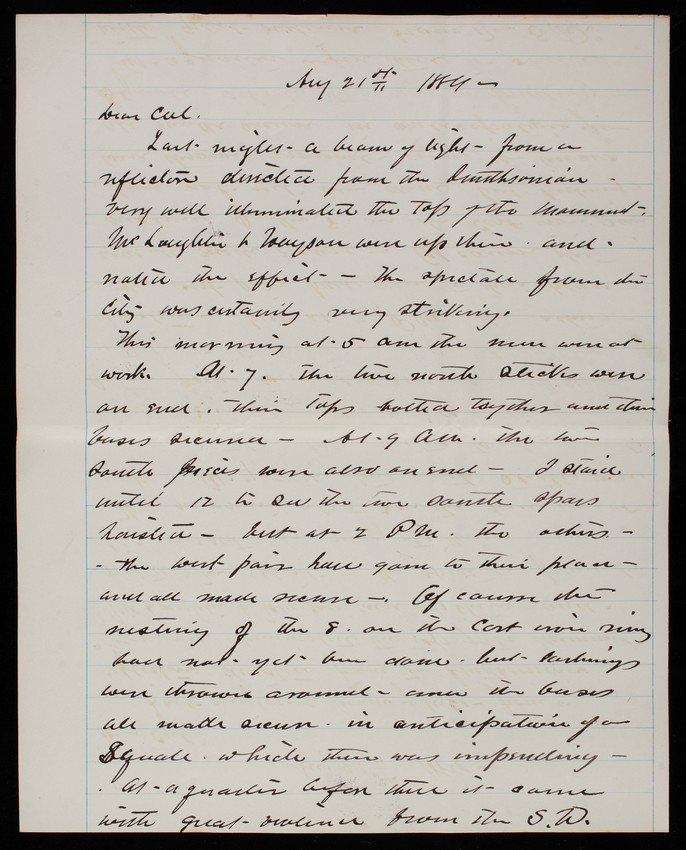 Aug 21st 1884 –
Dear Col.
Last night - a beam of light - from a
reflector directed from the Smithsonian -
very well illuminated the top of the monument.
McLaughlin & Wayson were up there. and
noted the effect - the spectacle from the
City was certainly very striking.
This morning at 5 am the men were at
work. At 7. the two north sticks were
on end. their tops bolted together and their
bases secured - At 9 AM. the two
South pieces were also on end - I staid
until 12 to see the two south spars
hoisted - but at 2 PM. the others -
- the west pair have gone to their place -
and all made secure -. Of course the
nesting of the 8. on the cast iron ring
have not - yet been done - but lashings
were thrown around - and the bases
all made secure. in anticipation of a
Squall. which then was impending -
. At - a quarter before three it - came
with great - violence from the S.W.